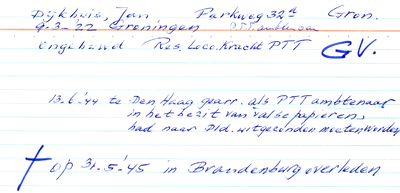 Dijkhuis, Jan Parkweg 32a Gron.
9-3-'22 Groningen PTT ambtenaar
Ongehuwd Res. Loco. Kracht PTT GV.
13-6-'44 te Den Haag gearr. als PTT ambtenaar
in het bezit van valse papieren,
had naar Dld. uitgezonden moeten worden
† op 31-5-'45 in Brandenburg overleden